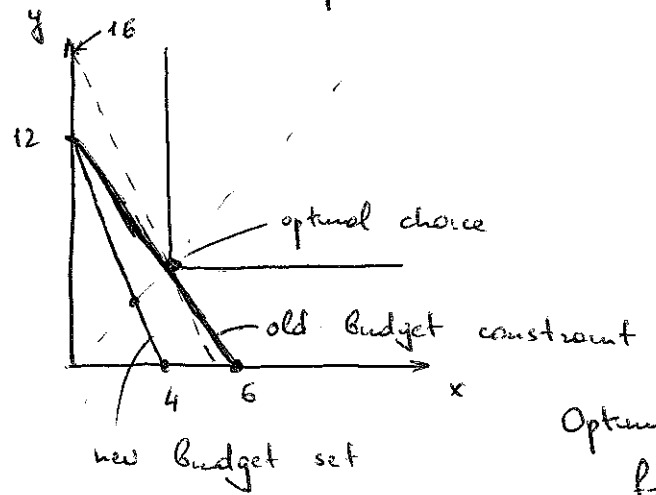 y
16
12
optimal choice
old Budget constraint
4
6
x
new Budget set